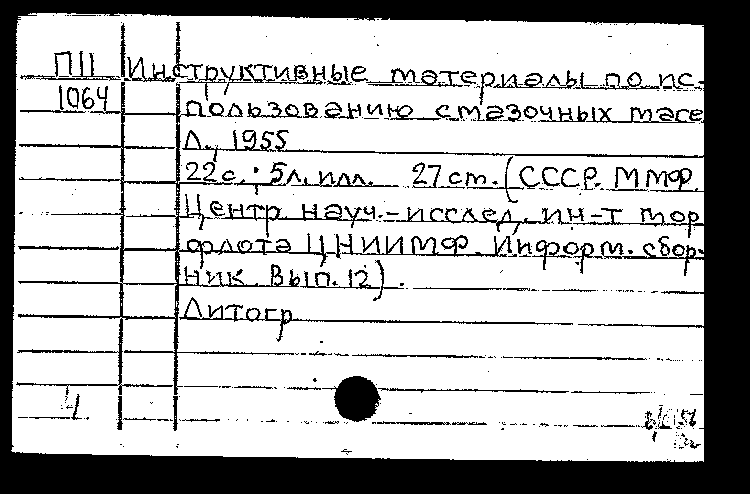 ПII Инструктивные материалы по ис-
1064 пользованию смазочных масе
Л., 1955
22с.; 5л. илл. 27 ст. (СССР. ММФ.
Центр. науч.-исслед. ин-т мор
флота ЦНИИМФ. Информ. сбор-
ник. Вып. 12).
Литогр
4